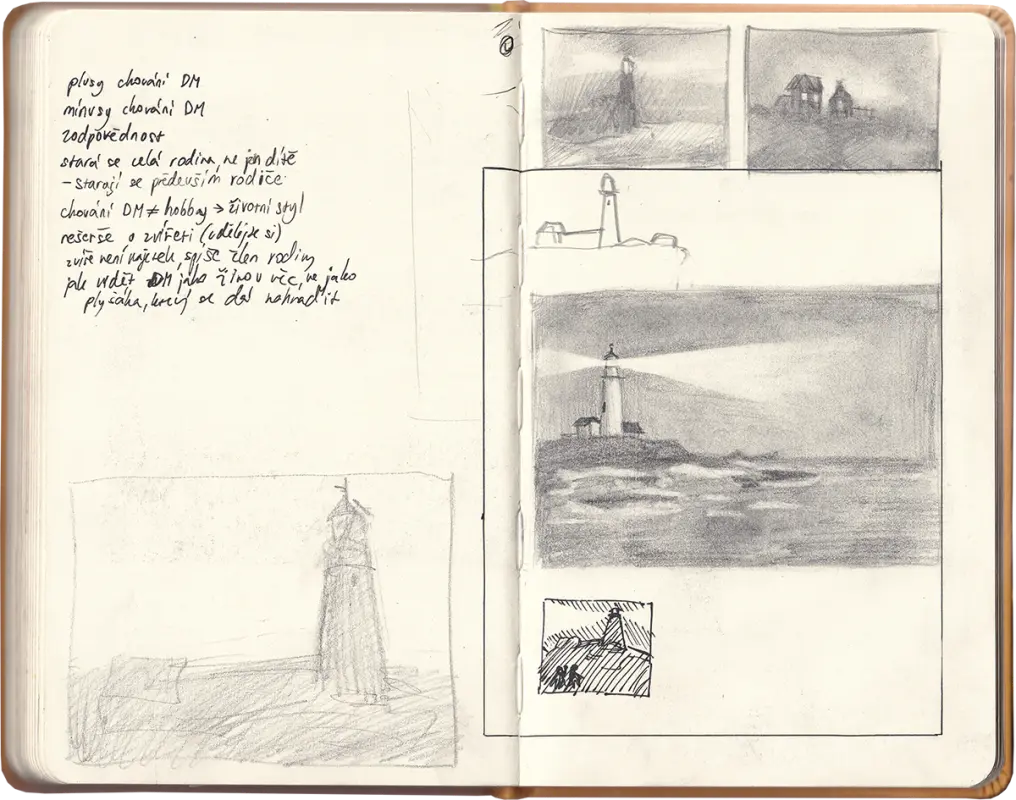 plusy chování DM
mínusy chování DM
zodpovědnost
stará se celá rodina, ne jen dítě
- starají se především rodiče
chování DM ≠ hobby → životní styl
rešerše o zvířeti (udělejte si)
zvíře není mazlíček, spíše člen rodiny
jak vidět DM jako živou věc, ne jako
plyšáka, který se dá nahradit